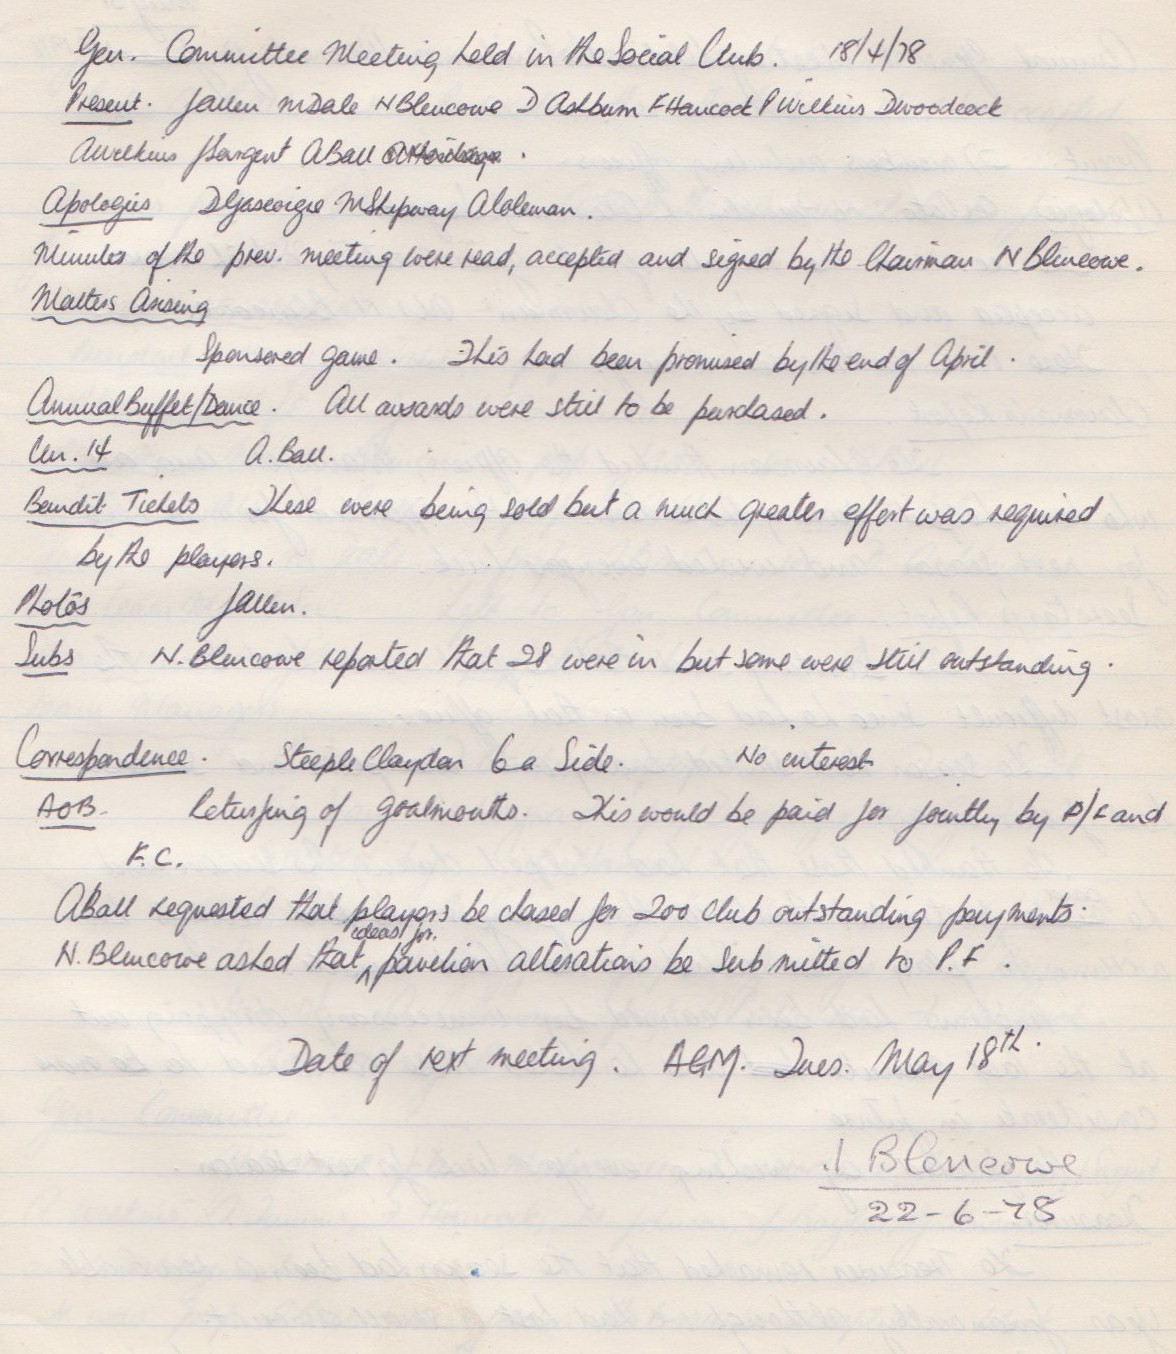 Gen. Committee Meeting held in the Social Club. 18/4/78
Present. J Allen M Dale N Blencowe D Ashburn F Hancock P Wilkins D Woodcock
A Wilkins J Sargent A Ball .
Apologies D Gascoigne M Shipway A Coleman.
Minutes of the prev. meeting were read, accepted and signed by the Chairman N Blencowe.
Matters Arising
Sponsered game. This had been promised by the end of April.
Annual Buffet/Dance. All awards were still to be purchased.
Un. 14 A. Ball.
Bandit Tickets These were being sold but a much greater effort was required
by the players.
Photos J Allen.
Subs N. Blencowe reported that 28 were in but some were still outstanding.
Correspondence. Steeple Claydon 6 a Side. No interest
AOB. Returfing of goalmouths. This would be paid for jointly by P/F and
F.C.
A Ball requested that players be chased for 200 club outstanding payments.
N. Blencowe asked that ideas for pavilion alterations be submitted to P.F.
Date of next meeting. AGM. Tues. May 18th.
Blencowe
22-6-78